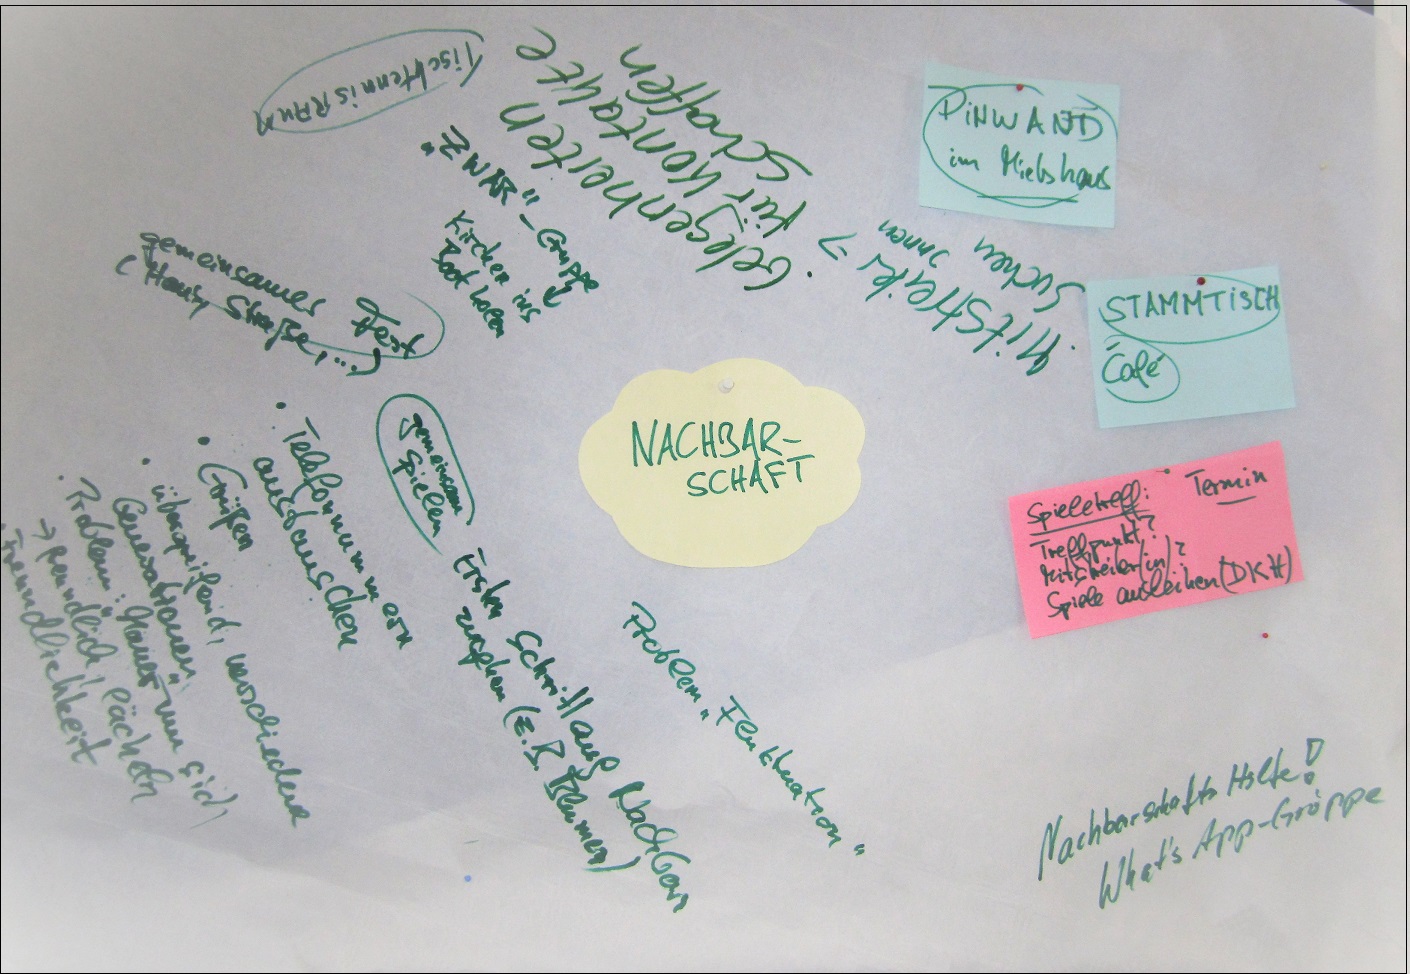 NACHBAR-
SCHAFT
PiNWAND
im Mietshaus
STAMMTiSCH
Café
Spieletreff: Termin
Treffpunkt?
Mitstreiter(in)?
Spiele ausleihen (DKH)
Nachbarschafts Hilfe!
What's App-Grüppe
Problem „Fluktuation"
Ersten Schritt auf Nachbarn
zugehen (z.B. Blumen)
gemeinsam
Spielen
• Telefonnummern
austauschen
• Grüßen
• übergreifend, verschiedene
Generationen
• Problem: „Mauer um sich"
→ freundlich, lächeln
Freundlichkeit
gemeinsames Fest
(Haus, Straße, ...)
TischtennisRAUM
„ZWAR" - Gruppe
Kirchen ins
Boot holen
• Gelegenheiten
für Kontakte
schaffen
• Mitstreiter >
innen
suchen